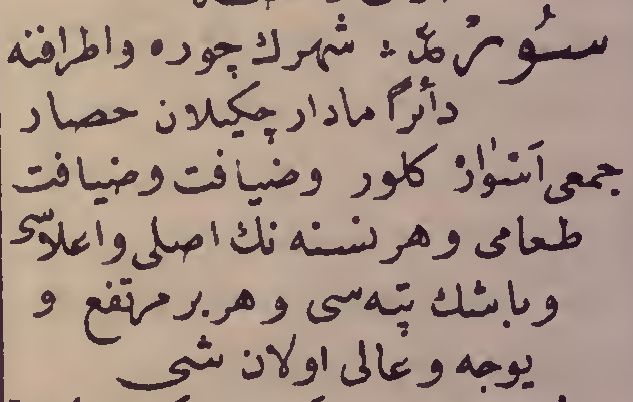 سُورْ مدّ : شهرك چوره و اطرافنه
دأئرًا مادار چكيلان حصار
جمعى اَسْوَارْ كلور وضيافت وضيافت
طعامى و هر نسنه نك اصلى و اعلاسى
و باشك تپه سى و هر بر مرتفع و
يوجه و عالى اولان شى